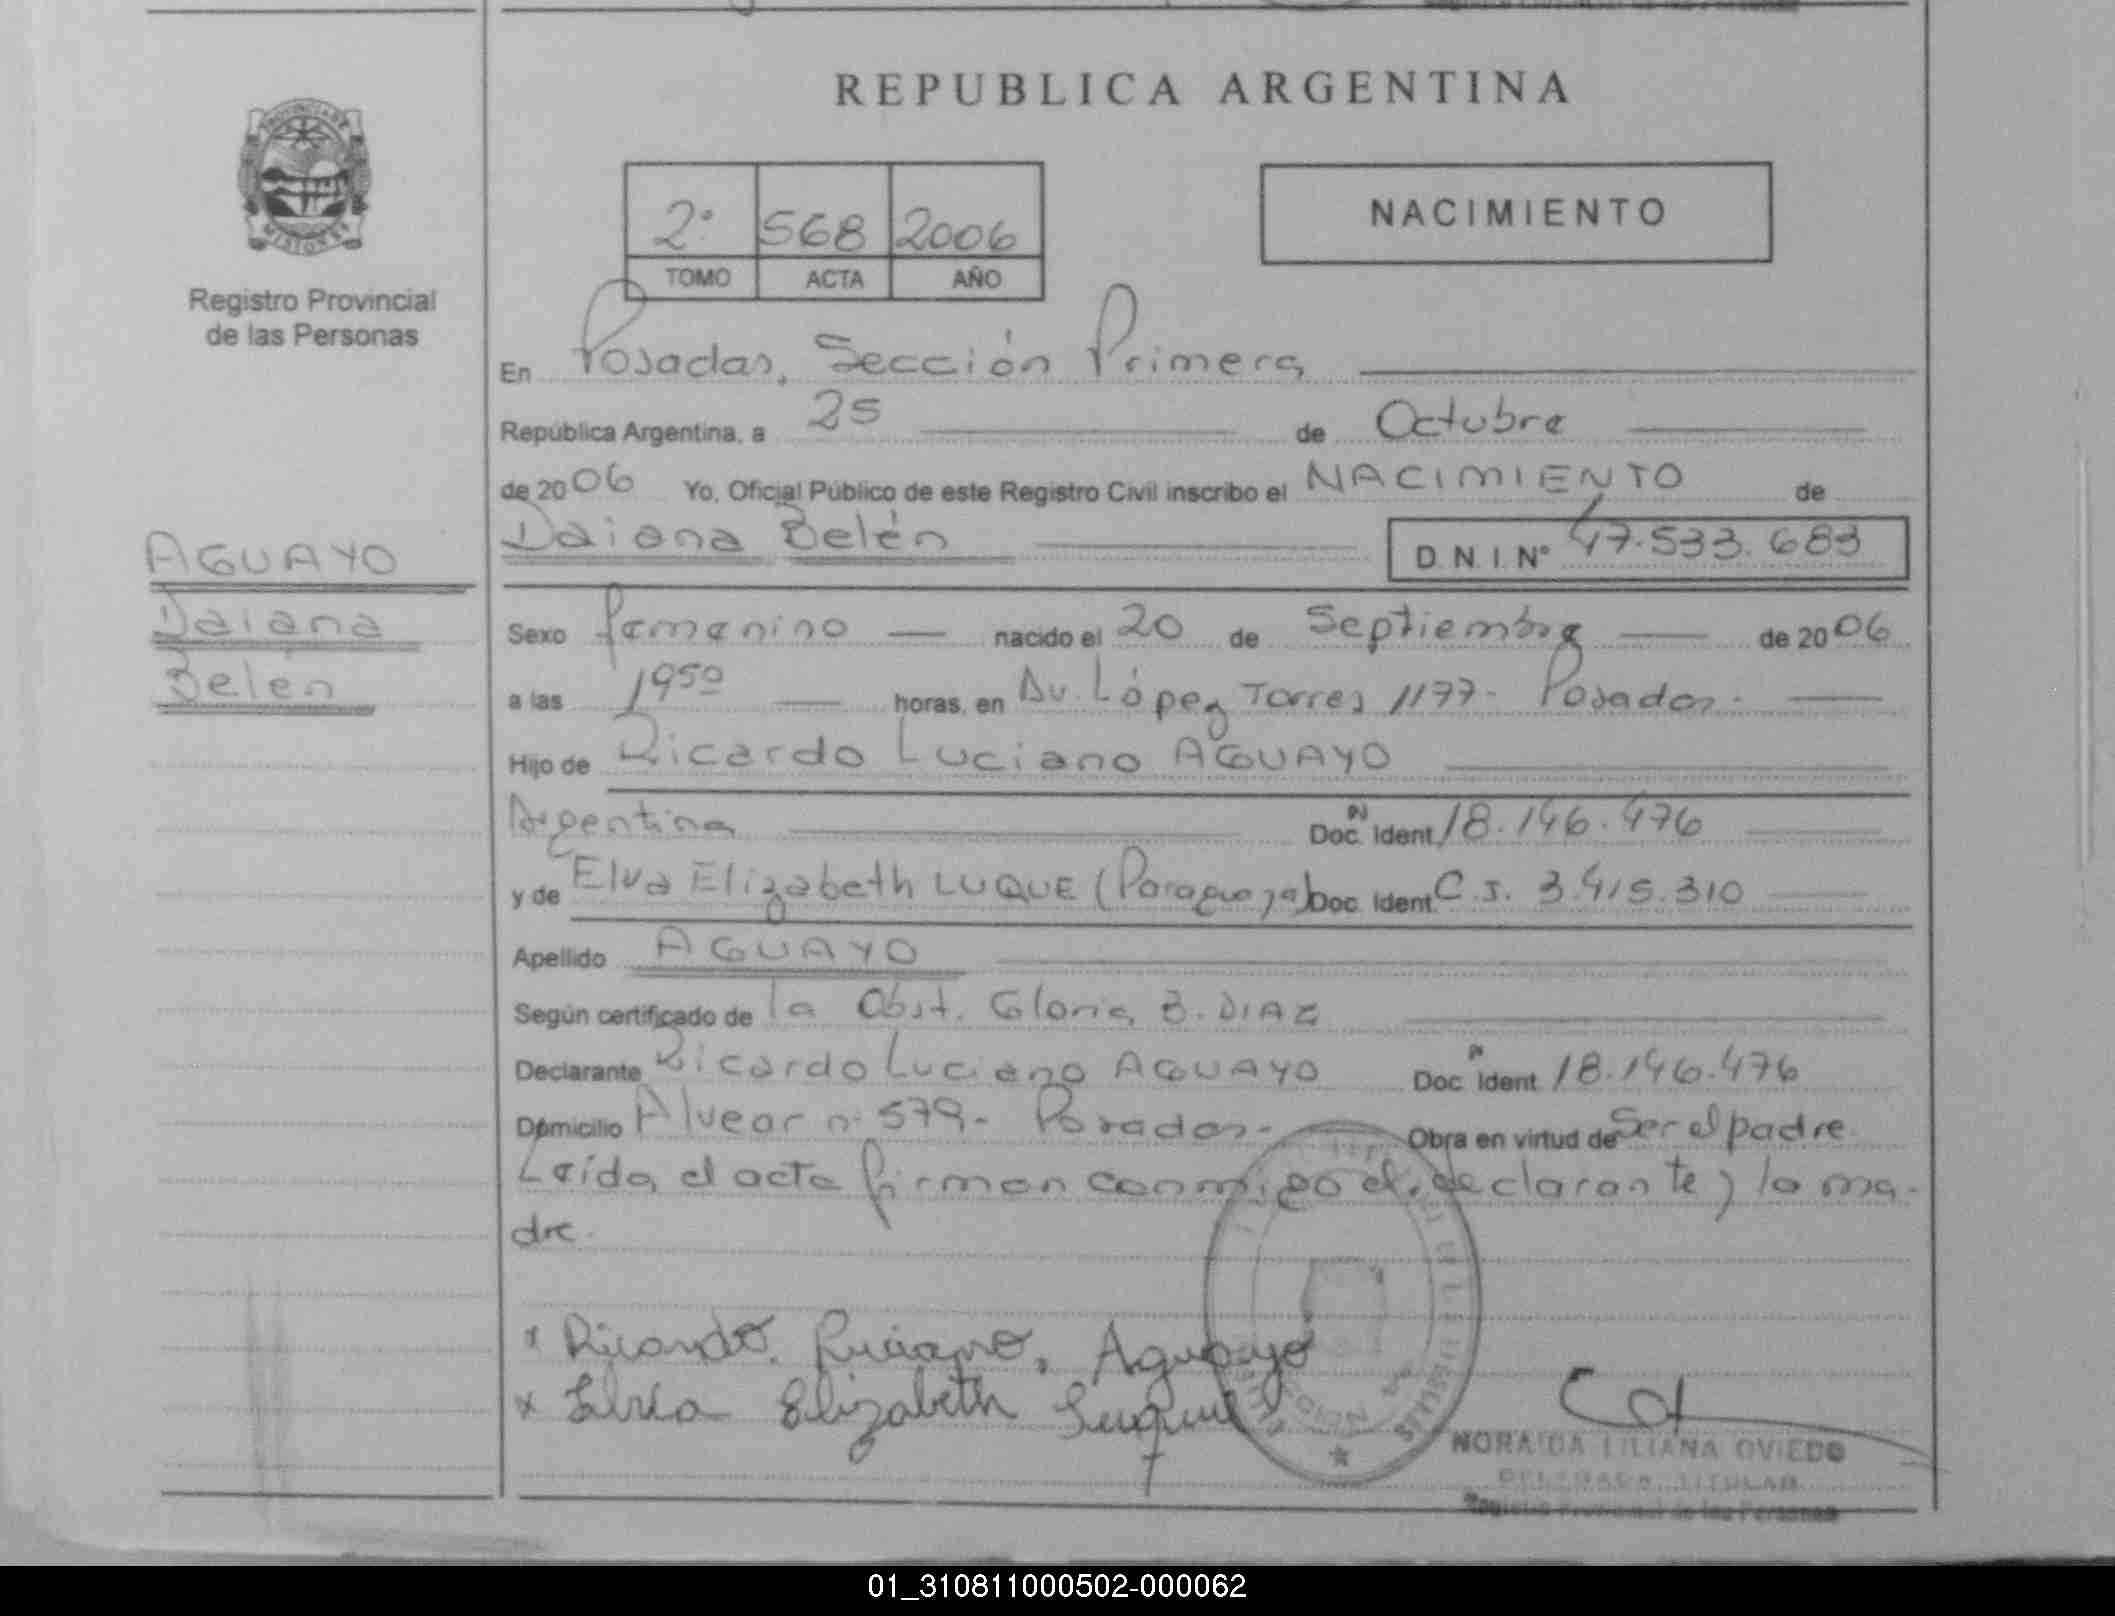 REPUBLICA ARGENTINA
PROVINCIA DE
MISIONES
Registro Provincial
de las Personas
2º 568 2006
TOMO ACTA AÑO
NACIMIENTO
En Posadas, Sección Primera
República Argentina, a 25 de Octubre
de 2006 Yo, Oficial Público de este Registro Civil inscribo el NACIMIENTO de
Daiana Belén D.N.I.Nº 47.533.683
AGUAYO
Daiana
Belén
Sexo femenino nacido el 20 de Septiembre de 2006
a las 19 50 horas, en Av. López Torres 1177- Posadas.
Hijo de Ricardo Luciano AGUAYO
Argentina Doc. Ident. 18.146.476
y de Elva Elizabeth LUQUE (Paraguaya) Doc. Ident. C.I. 3.415.310
Apellido AGUAYO
Según certificado de la Obst. Gloria B. DIAZ
Declarante Ricardo Luciano AGUAYO Doc. Ident. 18.146.476
Domicilio Alvear nº 579- Posadas- Obra en virtud de Ser el padre.
Leída el acta firman conmigo el declarante y la ma-
dre.
x Ricardo. Luciano, Aguayo
x Elva Elizabeth Luque
NORAIDA LILIANA OVIEDO
DELEGADA TITULAR
Registro Provincial de las Personas
01_310811000502-000062